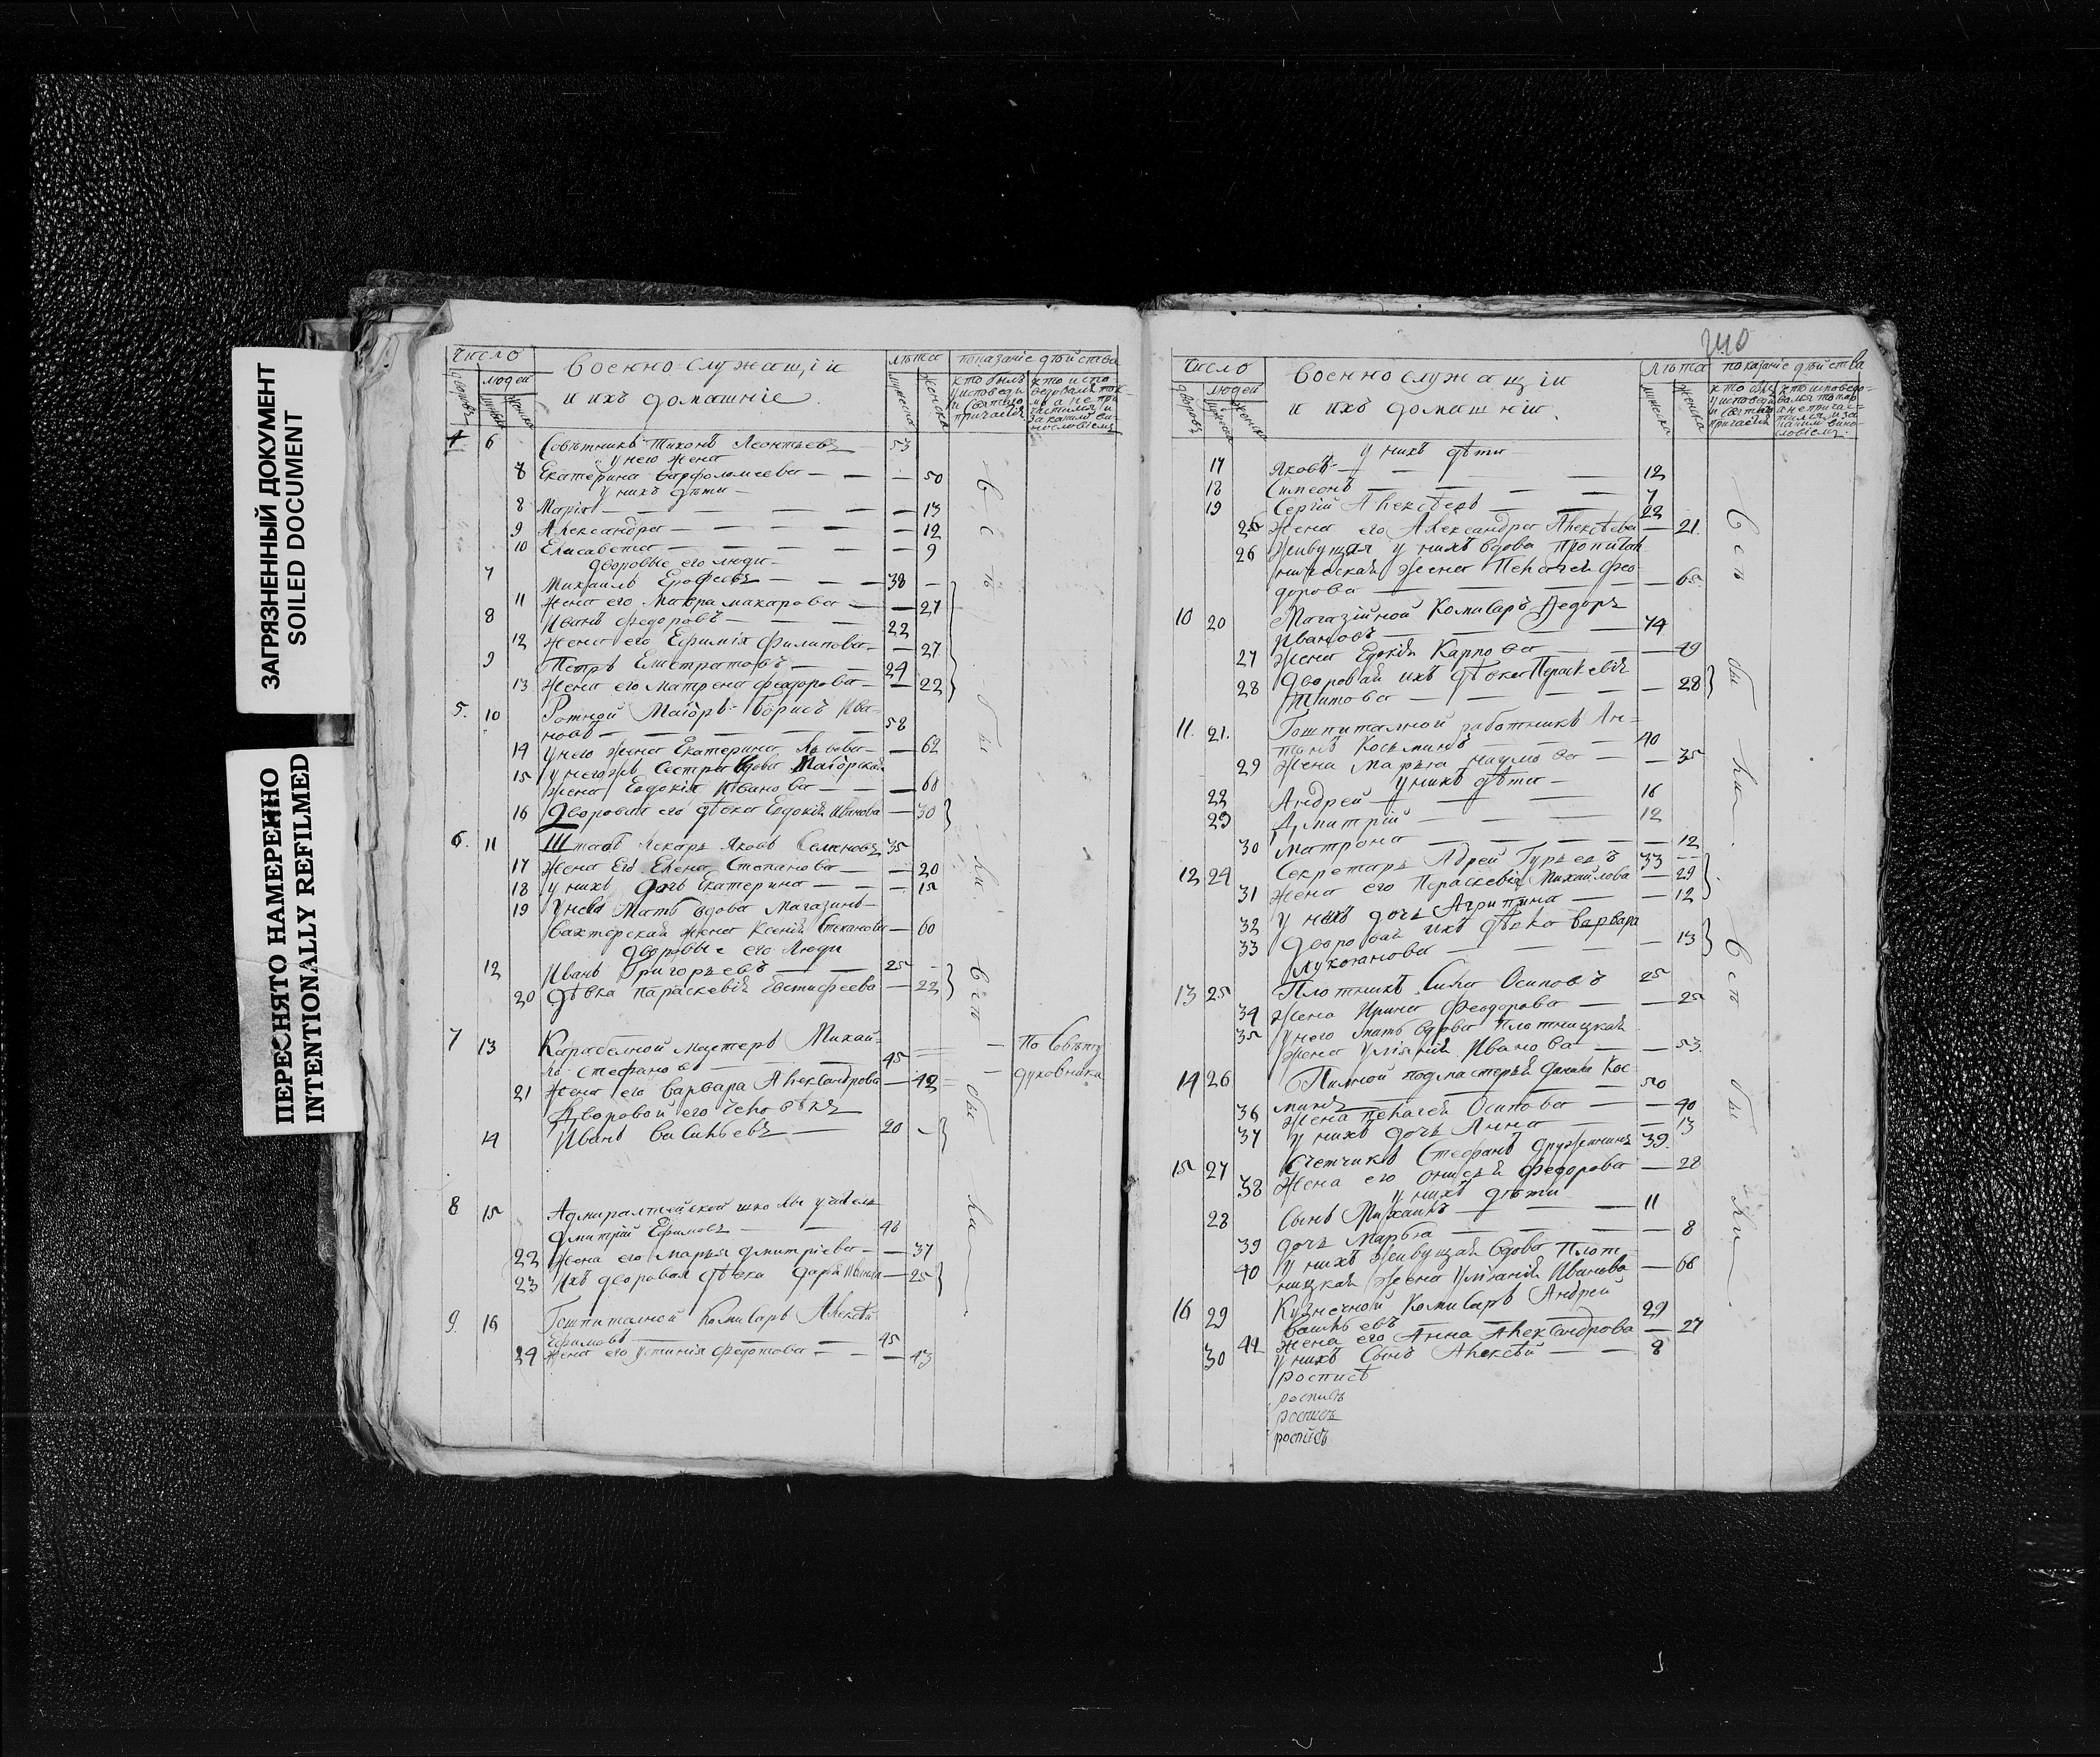 ЗАГРЯЗНЕННЫЙ ДОКУМЕНТ
SOILED DOCUMENT
ПЕРЕСНЯТО НАМЕРЕННО
INTENTIONALLY REFILMED
число
людей
военно служащіи
и ихъ домашніе
лѣта
показаніе дѣйства
4 6 Совѣтникъ Тихонъ Леонтьевъ 53
у него жена
Екатерина Варфоломѣева 50
у нихъ дѣти
8 Марія 13
9 Александра 12
10 Елисавета 9
дворовые его люди
7 Михаилъ Ерофеевъ 38
11 жена его Мавра Макарова 27
8 Иванъ Федоровъ 22
12 жена его Ефимія Филипова 27
9 Петръ Естратовъ 24
13 жена его Матрена Феодорова 22
5. 10 Ротной Маіоръ Борисъ Ива-
новъ 58
14 у него жена Екатерина Львова 62
15 у него же сестра вдова Маіорская
жена Евдокія Иванова
16 Дворовая его дѣвка Евдокія Иванова 30
6. 11 Штабъ лекарь Яковъ Семеновъ 35
17 жена его Елена Степанова 20
18 у нихъ дочь Екатерина
19 у нева мать вдова магазинъ-
вахтерская жена Ксенія Степанова 60
дворовые его люди
12 Иванъ Григорьевъ 25
20 дѣвка Параскевія Евстифеева 22
7 13 Карабелной мастеръ Михай-
ло Стефановъ 45
По совѣту
духовника
21 жена его Варвара Александрова 42
Дворовой его человѣкъ
14 Иванъ Васильевъ 20
8 15 Адмиралтейской школы учитель
Дмитрій Ефимовъ 40
22 жена его Марья Дмитріева 37
23 Ихъ дворовая дѣвка Дарья 25
9 16 Гошпиталной комисаръ Алексѣй
Ефимовъ 45
24 жена его Устинія Федотова 43
240
число
людей
военно служащіи
и ихъ домашніи
лѣта
показаніе дѣйства
у нихъ дѣти
17 Яковъ 12
18 Симеонъ 7
19 Сергій Алексѣевъ 22
25 жена его Александра Алексѣева 21.
26 живущая у нихъ вдова
жена Пелагея Фео-
дорова 65
10 20 Магазійной комисаръ Федоръ
Ивановъ 74
27 жена Евдокія Карпова 49
28 дворовая ихъ дѣвка Параскевія
Титова 28
11. 21. Гошпиталной работникъ Ан-
тонъ Косьминъ 40
29 жена Марѳа Наумова 35
у нихъ дѣти
22 Андрей 16
23 Дмитрій 12
30 Матрона 12
12 24 Секретарь Адрей Гурьевъ 33
31 жена его Параскевія Михайлова 29
32 у нихъ дочь Агрипина 12
33 дворовая ихъ дѣвка Варвара
13
13 25 Плотникъ Сила Осиповъ 25
34 жена Ирина Феодорова 25
35 у него мать вдова плотницкая
жена Уліянія Иванова 53.
14 26 Пилной подмастерья Данила Кос-
минъ 50
36 жена Пелагея Осипова 40
37 у нихъ дочь Анна 13
15 27 Счетчикъ Стефанъ Дружининъ 39.
38 жена его Онисья Федорова 28
у нихъ дѣти
28 сынъ Михаилъ 11
39 дочь Марѳа 8
40 у нихъ живущая вдова плот-
ницкая жена Уліянія Иванова 66
16 29 Кузнечной комисаръ Андрей
Васильевъ 29
41 жена его Анна Александрова 27
30 у нихъ сынъ Алексѣй 8
роспись
роспись
роспись
роспись